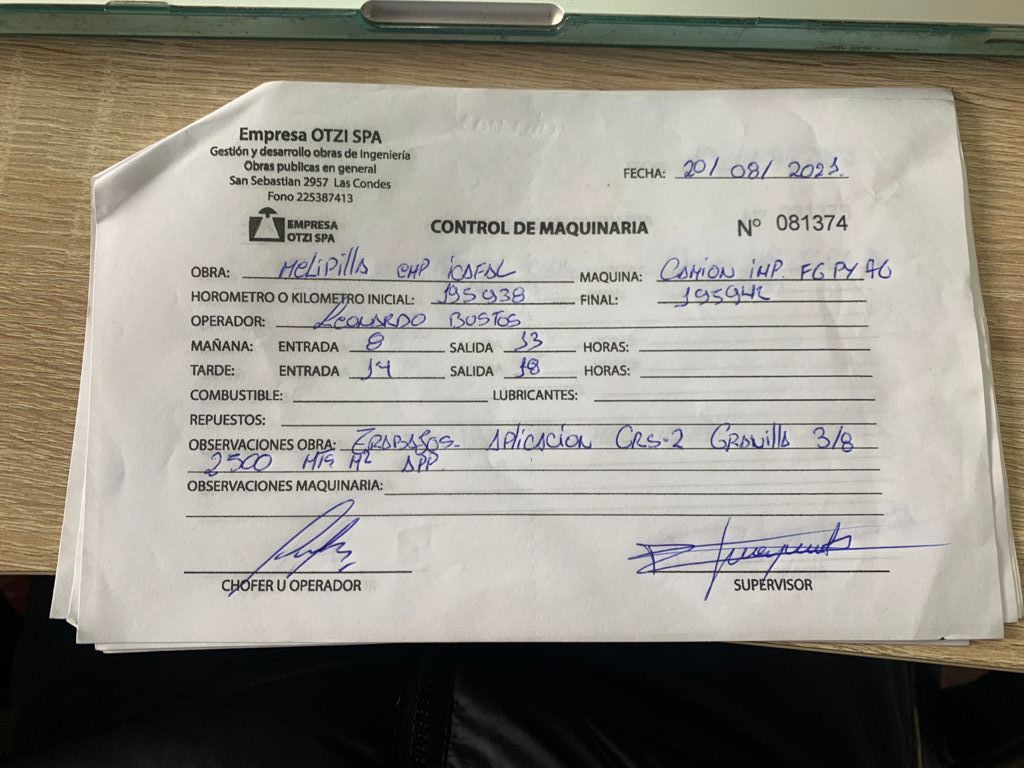 Empresa OTZI SPA
Gestión y desarrollo obras de Ingeniería
Obras publicas en general
San Sebastian 2957 Las Condes
Fono 225387413
FECHA: 20/ 08/ 2021.
EMPRESA
OTZI SPA
CONTROL DE MAQUINARIA
Nº 081374
OBRA: MELIPILLA EMP ICAFAL MAQUINA: CAMION IMP. FGPY 76
HOROMETRO O KILOMETRO INICIAL: 195938 FINAL: 195942
OPERADOR: LEONARDO BUSTOS
MAÑANA: ENTRADA 8 SALIDA 13 HORAS:
TARDE: ENTRADA 14 SALIDA 18 HORAS:
COMBUSTIBLE: LUBRICANTES:
REPUESTOS:
OBSERVACIONES OBRA: TRABAJOS- APLICACION CRS-2 GRAVILLA 3/8
2500 MTS M2 APP
OBSERVACIONES MAQUINARIA:
CHOFER U OPERADOR SUPERVISOR